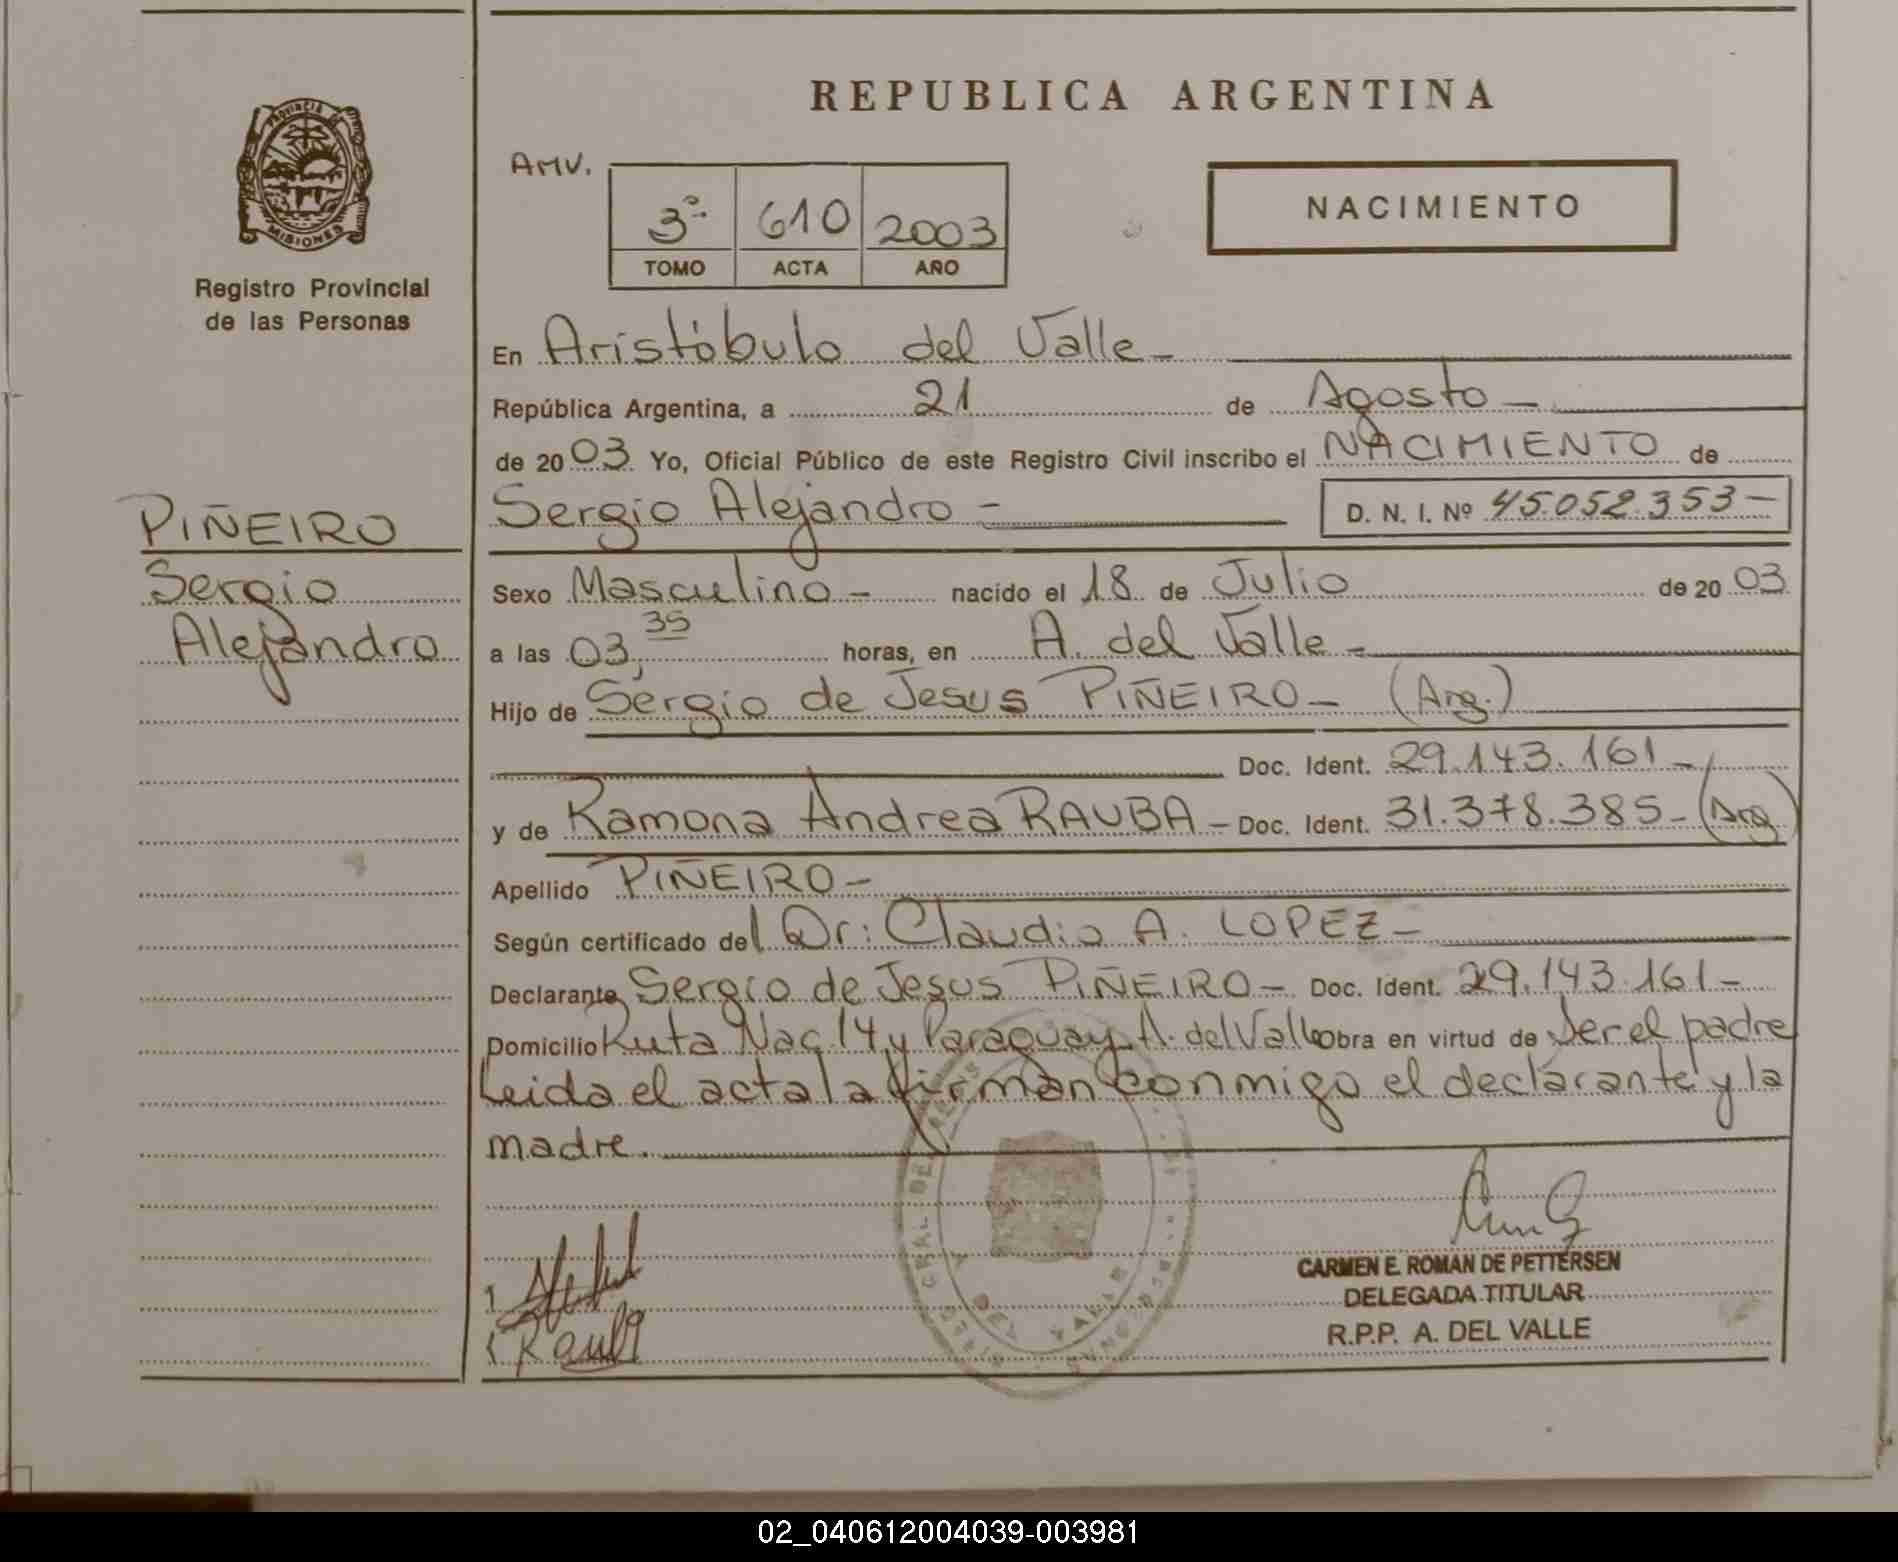 REPUBLICA ARGENTINA
PROVINCIA DE
MISIONES
Registro Provincial
de las Personas
AMV.
3º 610 2003
TOMO ACTA AÑO
NACIMIENTO
En Aristóbulo del Valle
República Argentina, a 21 de Agosto
de 2003. Yo, Oficial Público de este Registro Civil inscribo el NACIMIENTO de
Sergio Alejandro D. N. I. Nº 45.052.353
PIÑEIRO
Sergio
Alejandro
Sexo Masculino nacido el 18 de Julio de 2003
a las 03,35 horas, en A. del Valle
Hijo de Sergio de Jesus PIÑEIRO (Arg.)
Doc. Ident. 29.143.161
y de Ramona Andrea RAUBA Doc. Ident. 31.378.385 (Arg)
Apellido PIÑEIRO
Según certificado del Dr: Claudio A. LOPEZ
Declarante Sergio de Jesus PIÑEIRO Doc. Ident. 29.143.161
Domicilio Ruta Nac 14 y Paraguay A. del Valle obra en virtud de Ser el padre
Leida el acta la firman conmigo el declarante y la
madre.
CARMEN E. ROMAN DE PETTERSEN
DELEGADA TITULAR
R.P.P. A. DEL VALLE
02_040612004039-003981